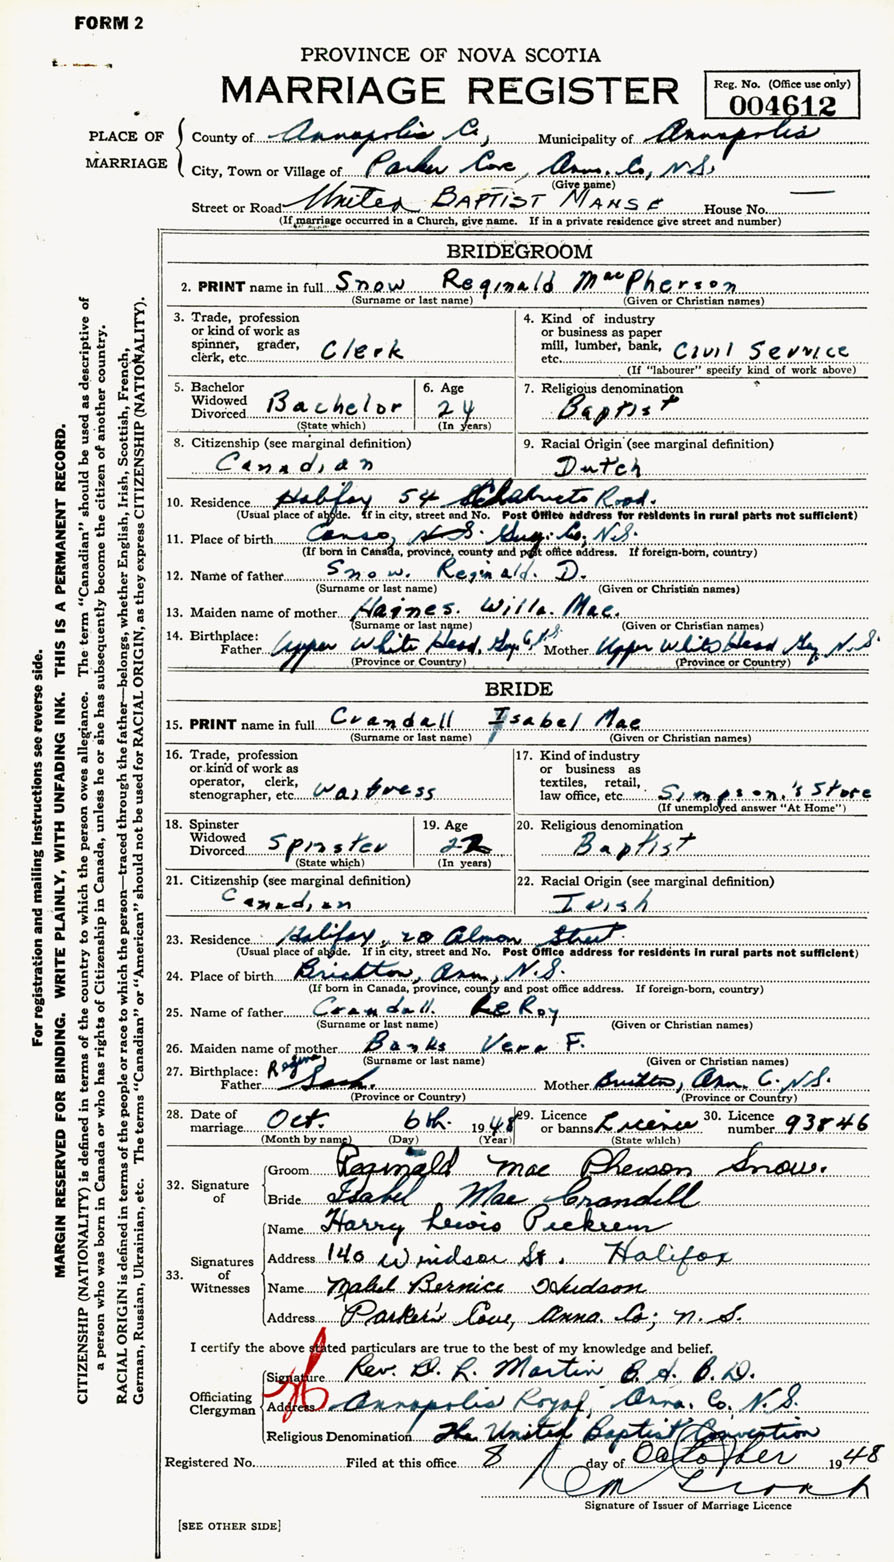 FORM 2
PROVINCE OF NOVA SCOTIA
MARRIAGE REGISTER
Reg. No. (Office use only)
004612
PLACE OF MARRIAGE
County of Annapolis Co, Municipality of Annapolis
City, Town or Village of Parker Cove, Ann. Co, N.S.
(Give name)
Street or Road United BAPTIST MANSE House No. —
(If marriage occurred in a Church, give name. If in a private residence give street and number)
BRIDEGROOM
2. PRINT name in full Snow Reginald MacPherson
(Surname or last name) (Given or Christian names)
3. Trade, profession or kind of work as spinner, grader, clerk, etc. Clerk
4. Kind of industry or business as paper mill, lumber, bank, etc. Civil Service
(If "labourer" specify kind of work above)
5. Bachelor Widowed Divorced Bachelor
(State which)
6. Age 24
(In years)
7. Religious denomination Baptist
8. Citizenship (see marginal definition) Canadian
9. Racial Origin (see marginal definition) Dutch
10. Residence Halifax 54 Road.
(Usual place of abode. If in city, street and No. Post Office address for residents in rural parts not sufficient)
11. Place of birth Canso, N.S. Guy. Co, N.S.
(If born in Canada, province, county and post office address. If foreign-born, country)
12. Name of father Snow. Reginald. D.
(Surname or last name) (Given or Christian names)
13. Maiden name of mother Haines. Willa. Mae.
(Surname or last name) (Given or Christian names)
14. Birthplace: Father Upper White Head, Guy. Co. N.S. Mother Upper White Head Guy. N.S.
(Province or Country) (Province or Country)
BRIDE
15. PRINT name in full Crandall Isabel Mae
(Surname or last name) (Given or Christian names)
16. Trade, profession or kind of work as operator, clerk, stenographer, etc. Waitress
17. Kind of industry or business as textiles, retail, law office, etc. Simpson's Store
(If unemployed answer "At Home")
18. Spinster Widowed Divorced Spinster
(State which)
19. Age 22
(In years)
20. Religious denomination Baptist
21. Citizenship (see marginal definition) Canadian
22. Racial Origin (see marginal definition) Irish
23. Residence Halifax, 20 Almon Street
(Usual place of abode. If in city, street and No. Post Office address for residents in rural parts not sufficient)
24. Place of birth Brickton, Ann, N.S.
(If born in Canada, province, county and post office address. If foreign-born, country)
25. Name of father Crandall. LeRoy
(Surname or last name) (Given or Christian names)
26. Maiden name of mother Banks Vera F.
(Surname or last name) (Given or Christian names)
27. Birthplace: Father Regina, Sask. Mother Ann. C. N.S.
(Province or Country) (Province or Country)
28. Date of marriage Oct. 6th. 1948
(Month by name) (Day) (Year)
29. Licence or banns Licence
(State which)
30. Licence number 93846
32. Signature of
Groom Reginald MacPherson Snow.
Bride Isabel Mae Crandall
33. Signatures of Witnesses
Name Harry Lewis Pickrem
Address 140 Windsor St. Halifax
Name Mabel Bernice Hudson
Address Parker's Cove, Anna. Co; N.S.
I certify the above stated particulars are true to the best of my knowledge and belief.
Officiating Clergyman
Signature Rev. D. L. Martin B.A. B.D.
Address Annapolis Royal, Anna. Co. N.S.
Religious Denomination The United Baptist Convention
Registered No. Filed at this office 8 day of October 1948
Signature of Issuer of Marriage Licence
[SEE OTHER SIDE]
For registration and mailing instructions see reverse side.
MARGIN RESERVED FOR BINDING. WRITE PLAINLY, WITH UNFADING INK. THIS IS A PERMANENT RECORD.
CITIZENSHIP (NATIONALITY) is defined in terms of the country to which the person owes allegiance. The term "Canadian" should be used as descriptive of
a person who was born in Canada or who has rights of Citizenship in Canada, unless he or she has subsequently become the citizen of another country.
RACIAL ORIGIN is defined in terms of the people or race to which the person—traced through the father—belongs, whether English, Irish, Scottish, French,
German, Russian, Ukrainian, etc. The terms "Canadian" or "American" should not be used for RACIAL ORIGIN, as they express CITIZENSHIP (NATIONALITY).